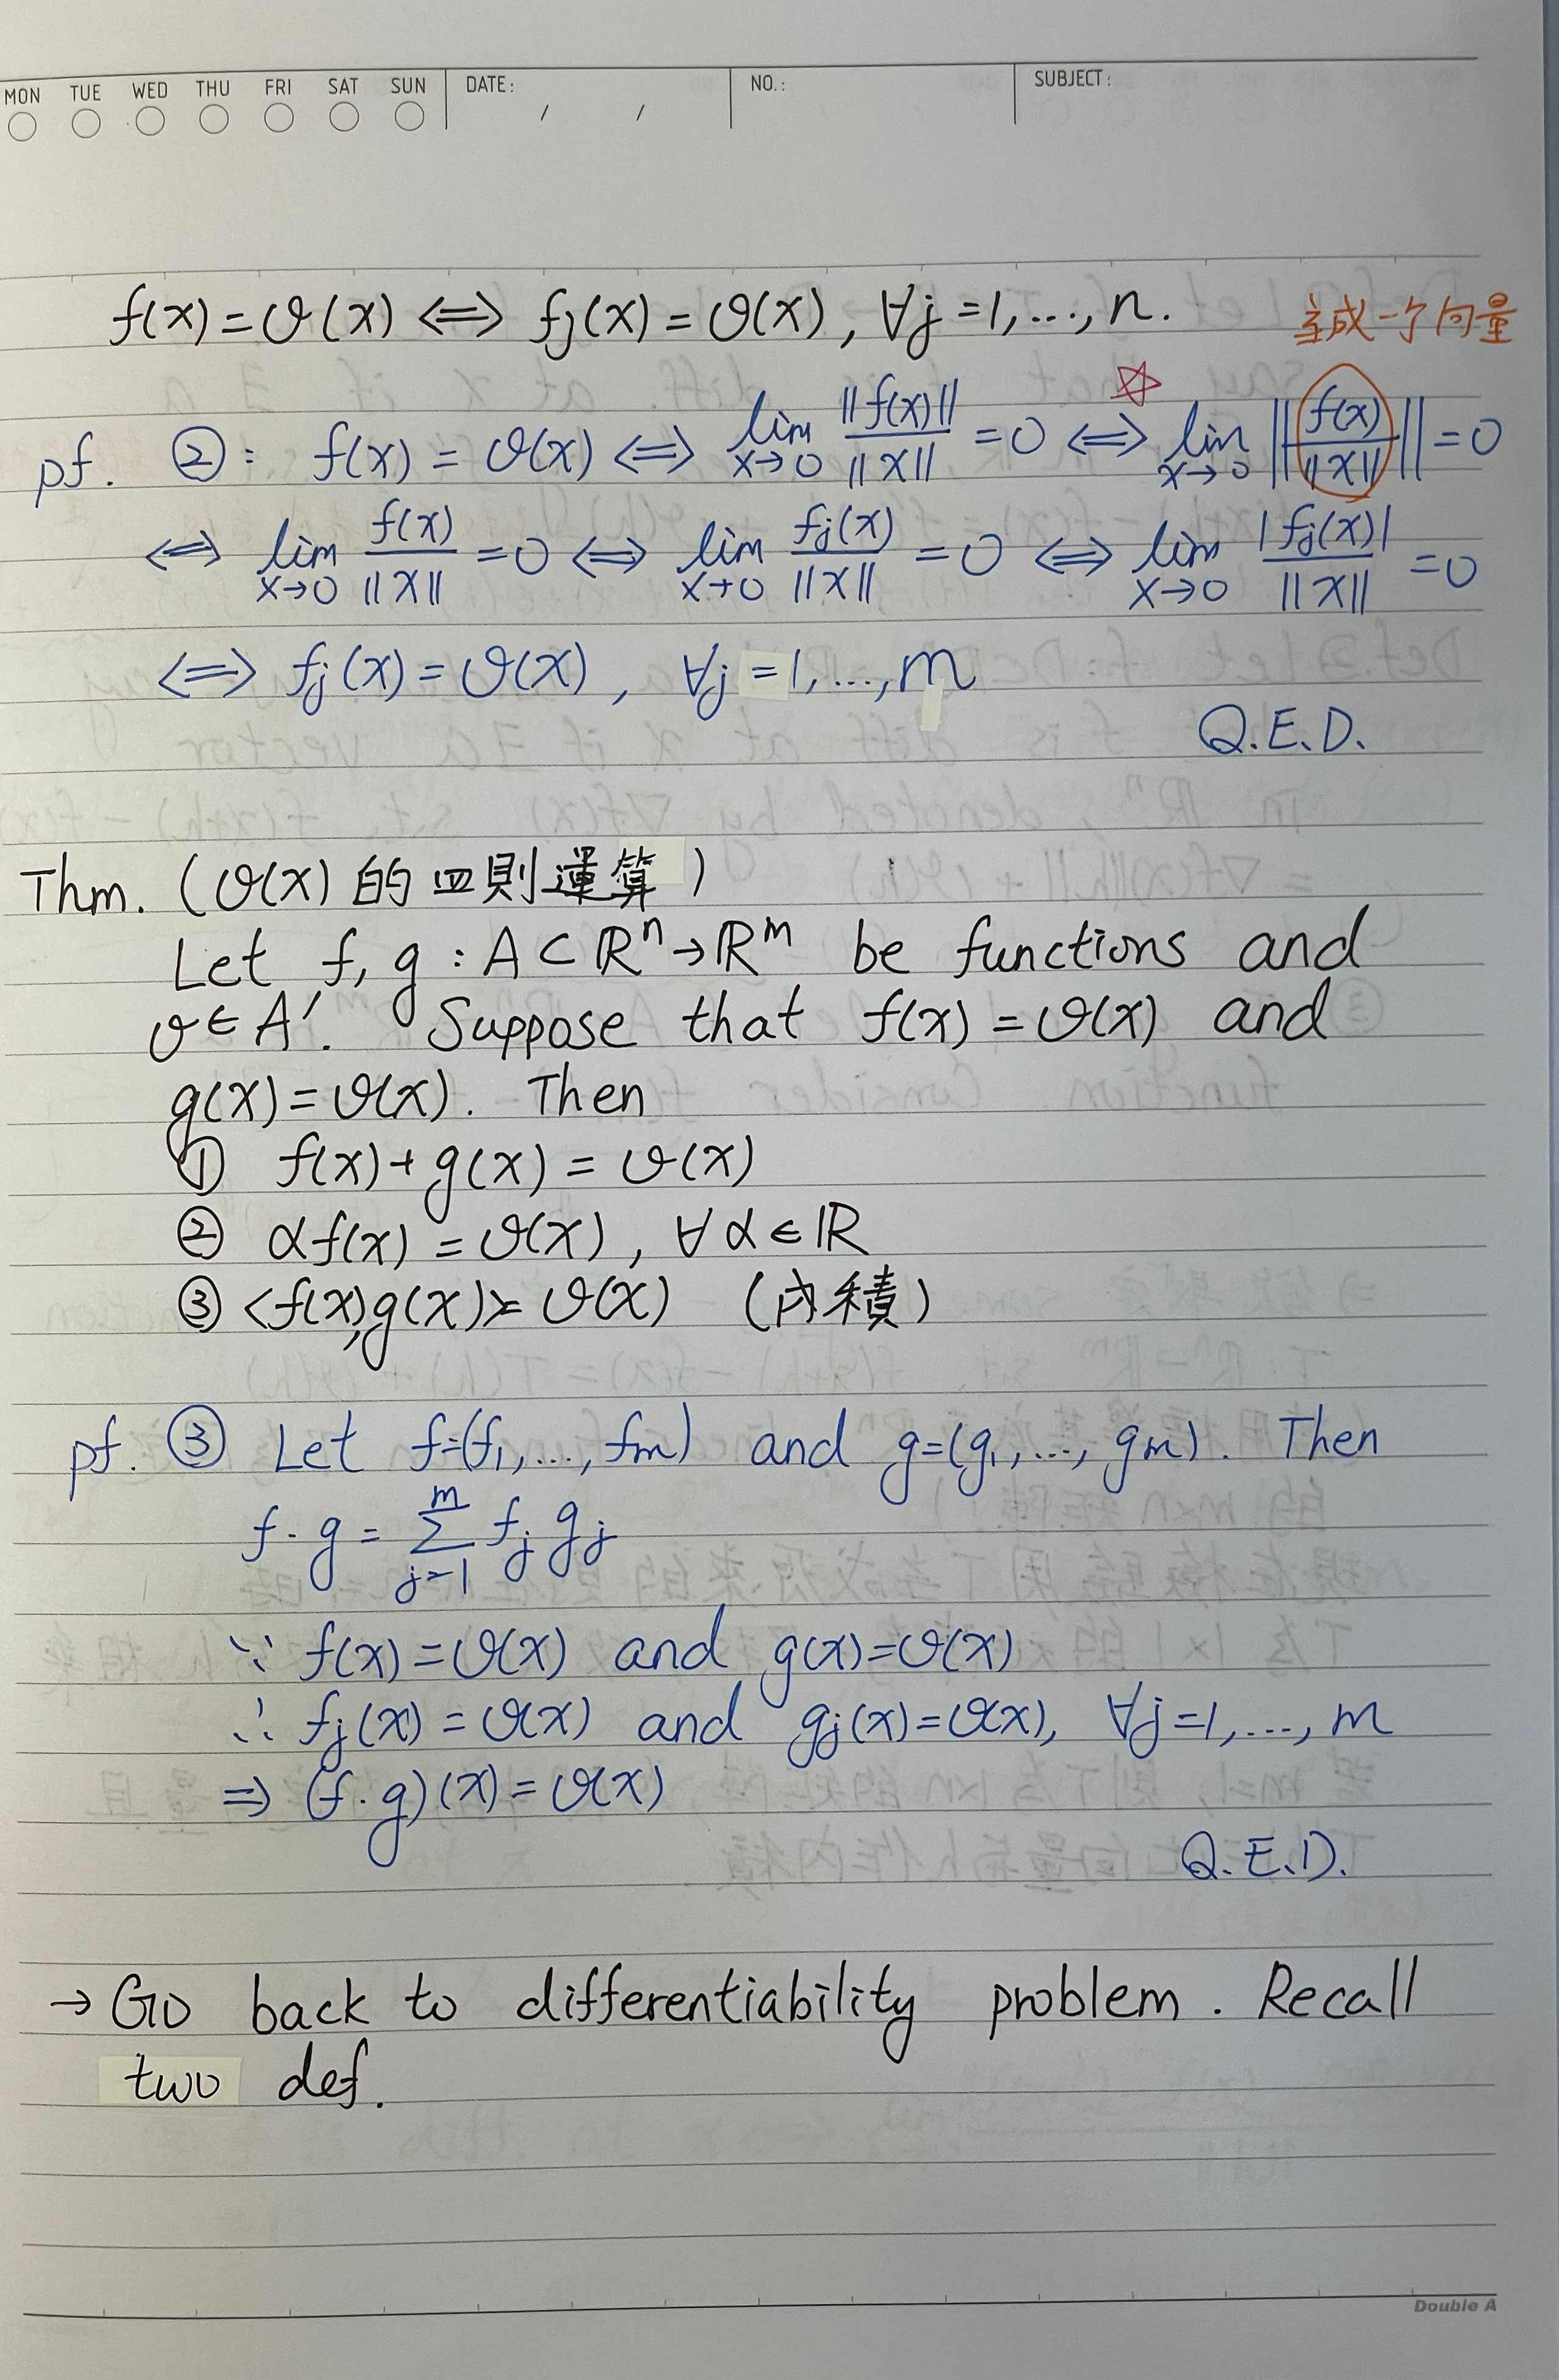 MON TUE WED THU FRI SAT SUN DATE: / / NO.: SUBJECT:
f(x) = o(x) ⟺ fj(x) = o(x), ∀j = 1, ..., n.
一个向量
☆
pf. ②: f(x) = o(x) ⟺ lim x→0 ||f(x)|| / ||x|| = 0 ⟺ lim x→0 || f(x) / ||x|| || = 0
⟺ lim x→0 f(x) / ||x|| = 0 ⟺ lim x→0 fj(x) / ||x|| = 0 ⟺ lim x→0 |fj(x)| / ||x|| = 0
⟺ fj(x) = o(x), ∀j = 1, ..., m
Q.E.D.
Thm. (o(x) 的四則運算)
Let f, g : A ⊂ ℝⁿ → ℝᵐ be functions and
o ∈ A'. Suppose that f(x) = o(x) and
g(x) = o(x). Then
① f(x) + g(x) = o(x)
② αf(x) = o(x), ∀α ∈ ℝ
③ <f(x), g(x)> = o(x) (內積)
pf. ③ Let f = (f₁, ..., fm) and g = (g₁, ..., gm). Then
f · g = Σ j=1 m fj gj
∵ f(x) = o(x) and g(x) = o(x)
∴ fj(x) = o(x) and gj(x) = o(x), ∀j = 1, ..., m
⇒ (f · g)(x) = o(x)
Q.E.D.
→ Go back to differentiability problem. Recall
two def.
Double A